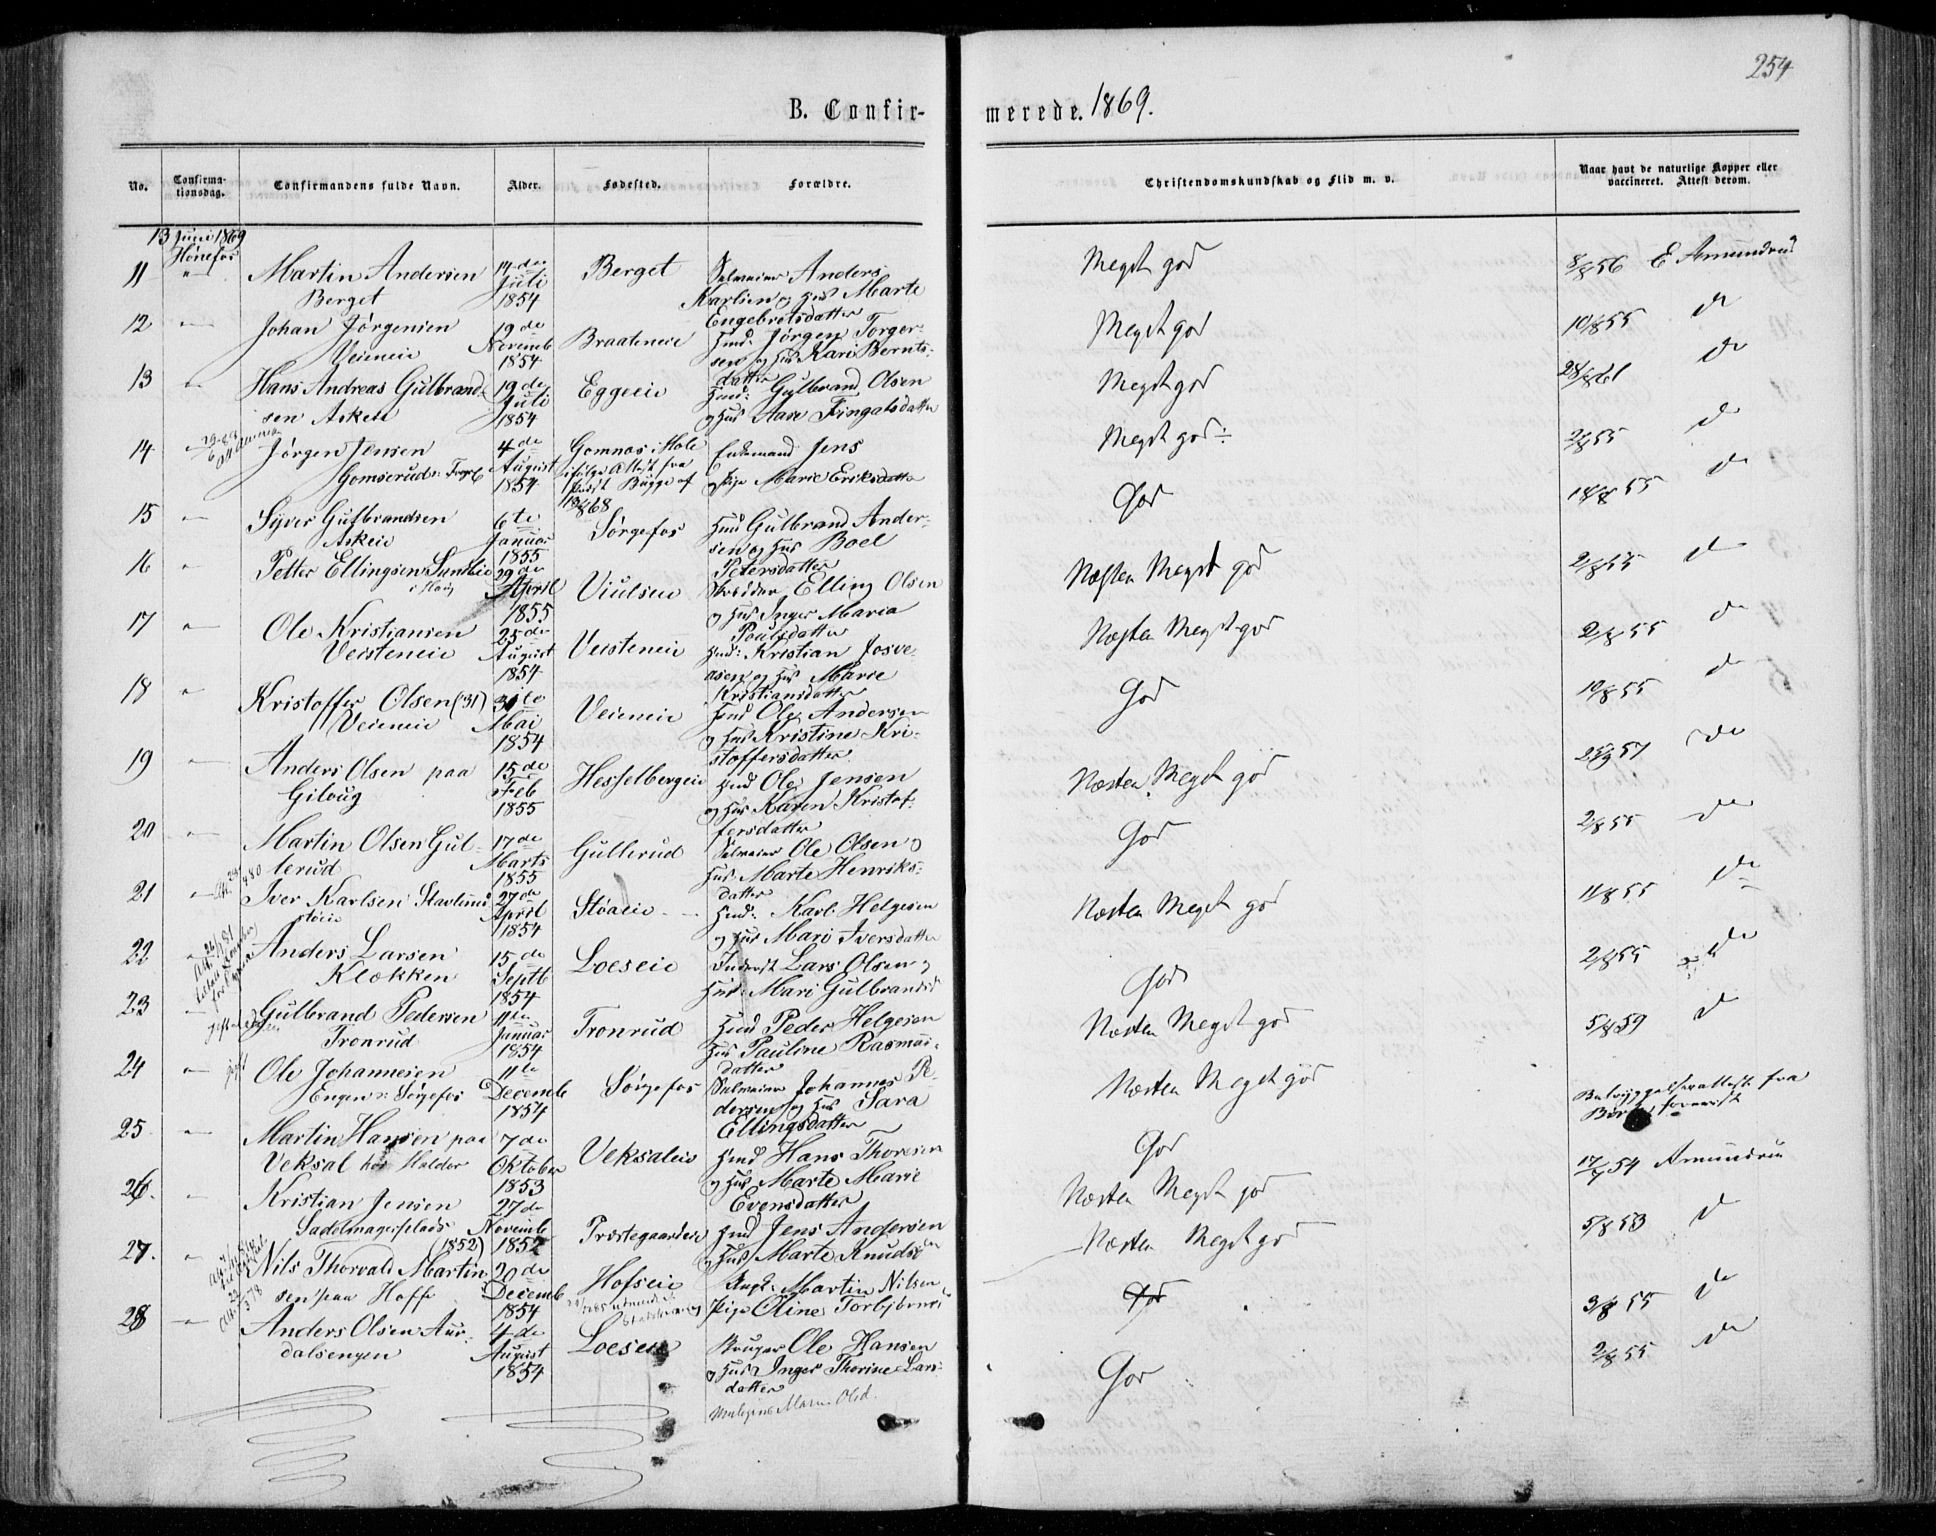 254
B. Confirmerede. 1869.
No. Confirmationsdag. Confirmandens fulde Navn. Alder. Fødested. Forældre. Christendomskundskab og Flid m. v. Naar havt de naturlige Kopper eller vaccineret. Attest derom.
13 Juni 1869
Hønefos
11 " Martin Andersen 14de Berget Anders Meget god 8/8 56 E Amundrud
Berget Juli 1854 Karlsen og Hus Marte
Engebretsdatter
12 " Johan Jørgensen 19de Braateneie Hmd: Jørgen Torger- Meget god 10/8 55 do
Veieneie Novemb 1854 sen og Hus Kari Bernts-
datter
13 " Hans Andreas Gulbrand- 19de Eggeeie Hmd: Gulbrand Olsen Meget god 28/8 61 do
sen Askeie Juli 1854 og Hus Aase Fingalsdatter
14 Jørgen Jensen 4de Gomnæs i Hole Enkemand Jens Meget god ÷ 2/8 55 do
Gomserud August ifølge Attest fra og Pige Marie Eriksdatter
1854 Bugge af
68
15 " Syver Gulbrandsen 6te Sørgefos Hmd Gulbrand Ander- God 18/8 55 do
Askeie Januar 1855 sen og Hus Boel
Petersdatter
16 " Petter Ellingsen 29de Viulseie Skrædder Elling Olsen Næsten Meget god 2/8 55 do
i Haug April 1855 og Hus Inger Maria
Paulsdatter
17 " Ole Kristiansen 25de Veisteneie Hmd: Kristian Josve- Næsten Meget god 2/8 55 do
Veisteneie August 1854 asen og Hus Marie
Kristiansdatter
18 " Kristoffer Olsen (31) 31te Veieneie Hmd Ole Andersen God 10/8 55 do
Veieneie Mai 1854 og Hus Kristine Kri-
stoffersdatter
19 " Anders Olsen paa 15de Hesselbergeie Hmd Ole Jensen Næsten Meget god 25/9 57 do
Gilbug Feb 1855 og Hus Karen Kristof-
fersdatter
20 " Martin Olsen Gul- 17de Gullerud Ole Olsen og God 2/8 55 do
lerud Marts 1855 Hus Marte Henriks-
datter
21 " Iver Karlsen 27de Støaeie Hmd: Karl Helgesen Næsten Meget god 11/8 55 do
Støeie April 1854 og Hus Mari Iversdatter
22 " Anders Larsen 15de Loeseie Inderst Lars Olsen og God 2/8 55 do
Klækken Septb 1854 Hus: Mari Gulbrandsd
23 " Gulbrand Pedersen 11te Tronrud Hmd Peder Helgesen Næsten Meget god 5/8 59 do
Tronrud Januar 1854 Hus Pauline Rasmus-
datter
24 " Ole Johannesen 11te Sørgefos Johannes Næsten Meget god fra
Engen v: Sørgefos Decemb 1854 dersen og Hus Sara
Ellingsdatter
25 " Martin Hansen paa 7de Veksaleie Hmd Hans Thoresen God 17/8 54 Amundrud
Veksal hos Halvor Oktober 1853 og Hus Marte Marie
Evensdatter
26. " Kristian Jensen 27de Præstegaardeie Hmd Jens Andersen Næsten Meget god 5/8 53 do
Sadelmagerplads (1852) Novemb 1852 og Hus Marte Knudsd
Næsten Meget god
27. " Nils Thorvald Martin- 20de Hofseie Ungk: Martin Nilsen God 3/8 55 do
sen paa Hoffe Decemb 1854 Pige Oline Torbjørnsd
28 " Anders Olsen Aur- 4de Loeseie Bruger Ole Hansen God 2/8 55 do
dalsengen August 1854 og Hus Inger Thorine Lars-
datter